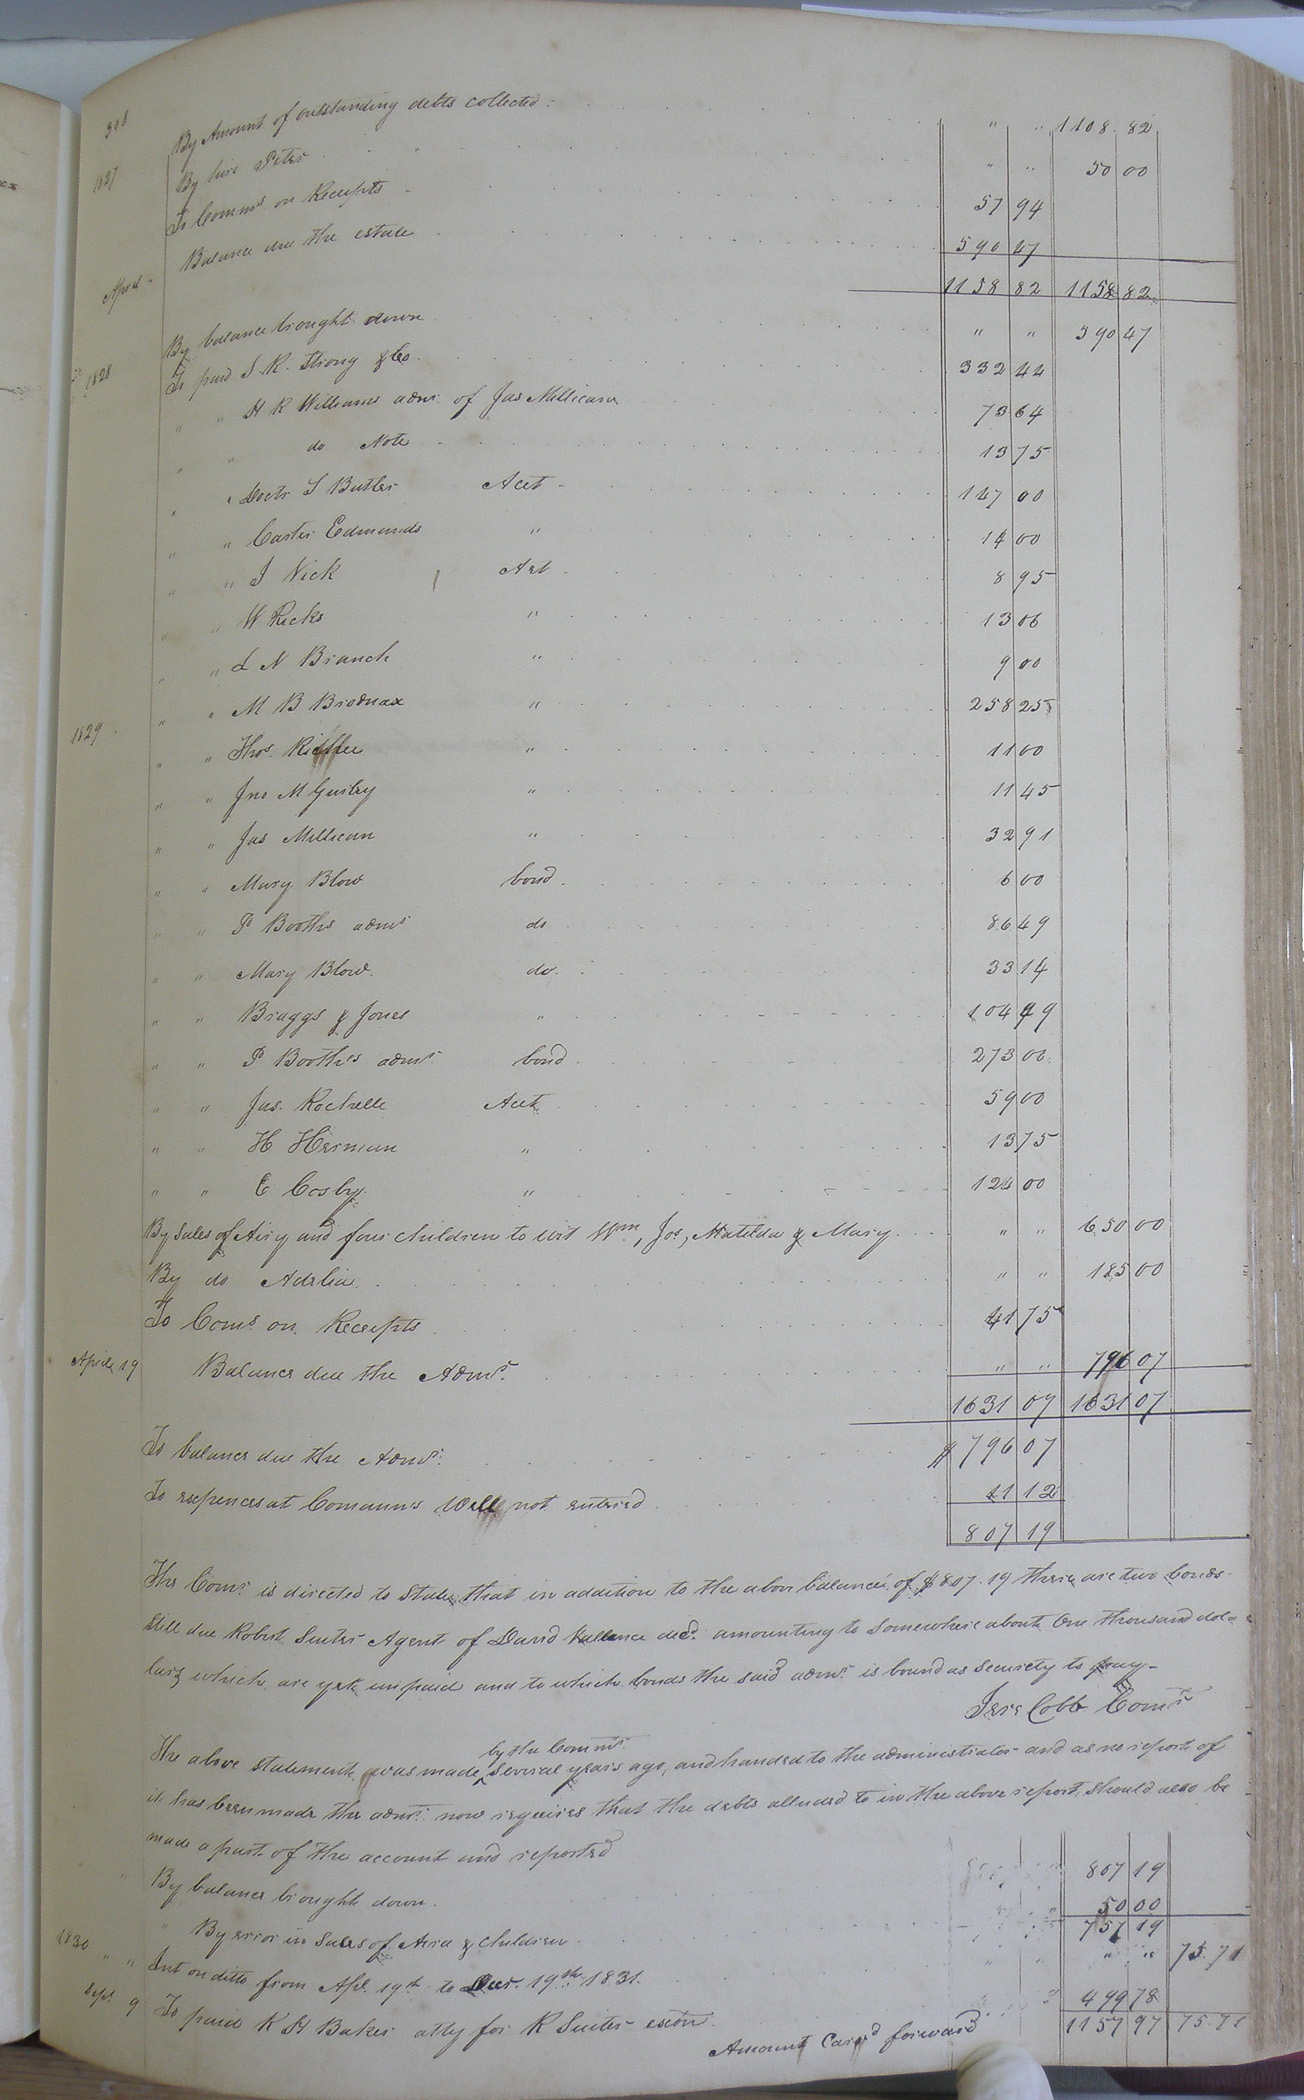 308 By Amount of outstanding debts collected. " " 1108.82
1827 By hire Peter " " 50 00
To Comms on Receipts 57 94
April Balance due the estate 590 47
1158 82 1158 82
By balance brought down " " 590 47
1828 To paid S. R. Strong & Co. 332 44
" " H R Williams adm. of Jas Millican 73 64
" " do Note 13 75
" " Doctr S Butler Acct 147 00
" " Carter Edmunds " 14 00
" " J Nick Act 8 95
" " W Ricks " 13 06
" " L N Branch " 9 00
" " M B Brodnax " 258 25
1829 " " Thos. " 11 00
" " Jno M Guiley " 11 45
" " Jas Millican " 32 91
" " Mary Blow bond 6 00
" " P Booths admr do 86 49
" " Mary Blow do 33 14
" " Braggs & Jones " 104 49
" " P Booth's admr bond 273 00
" " Jas. Rochelle Acct 59 00
" " H Herman " 13 75
" " E Cosby " 124 00
By Sales of Airy and four children to wit Wm, Jos, Matilda & Mary " " 650 00
By do Adelia " " 185 00
To Coms on Receipts 41 75
April 19 Balance due the Admr. " " 796 07
1631 07 1631 07
To balance due the Admr. $ 796 07
To expences at Comann's Well not entered 11 12
807 19
The Comr. is directed to State, that in addition to the abov balance of $807.19 there are two bonds
still due Robert Suiter Agent of David Vallance decd. amounting to somewhere about One thousand dol=
lars which are yet unpaid and to which bonds the said admr is bound as security to pay-
Jere Cobb Comr
by the Commr.
The above statement was made ^ several years ago, and handed to the administrator and as no report of
it has been made the admr. now requires that the debts alluded to in the above report should also be
made a part of the account and reported
By balance brought down. 807 19
" By error in Sales of Aira & Children 50 00
757 19
1830 " " Int on ditto from Apl. 19th to Decr. 19th 1831. " " 75.71
Sept 9 To paid K H Baker atty for R Suiter exor. 499 78
Amount Carrd forward 1157 97 75.71